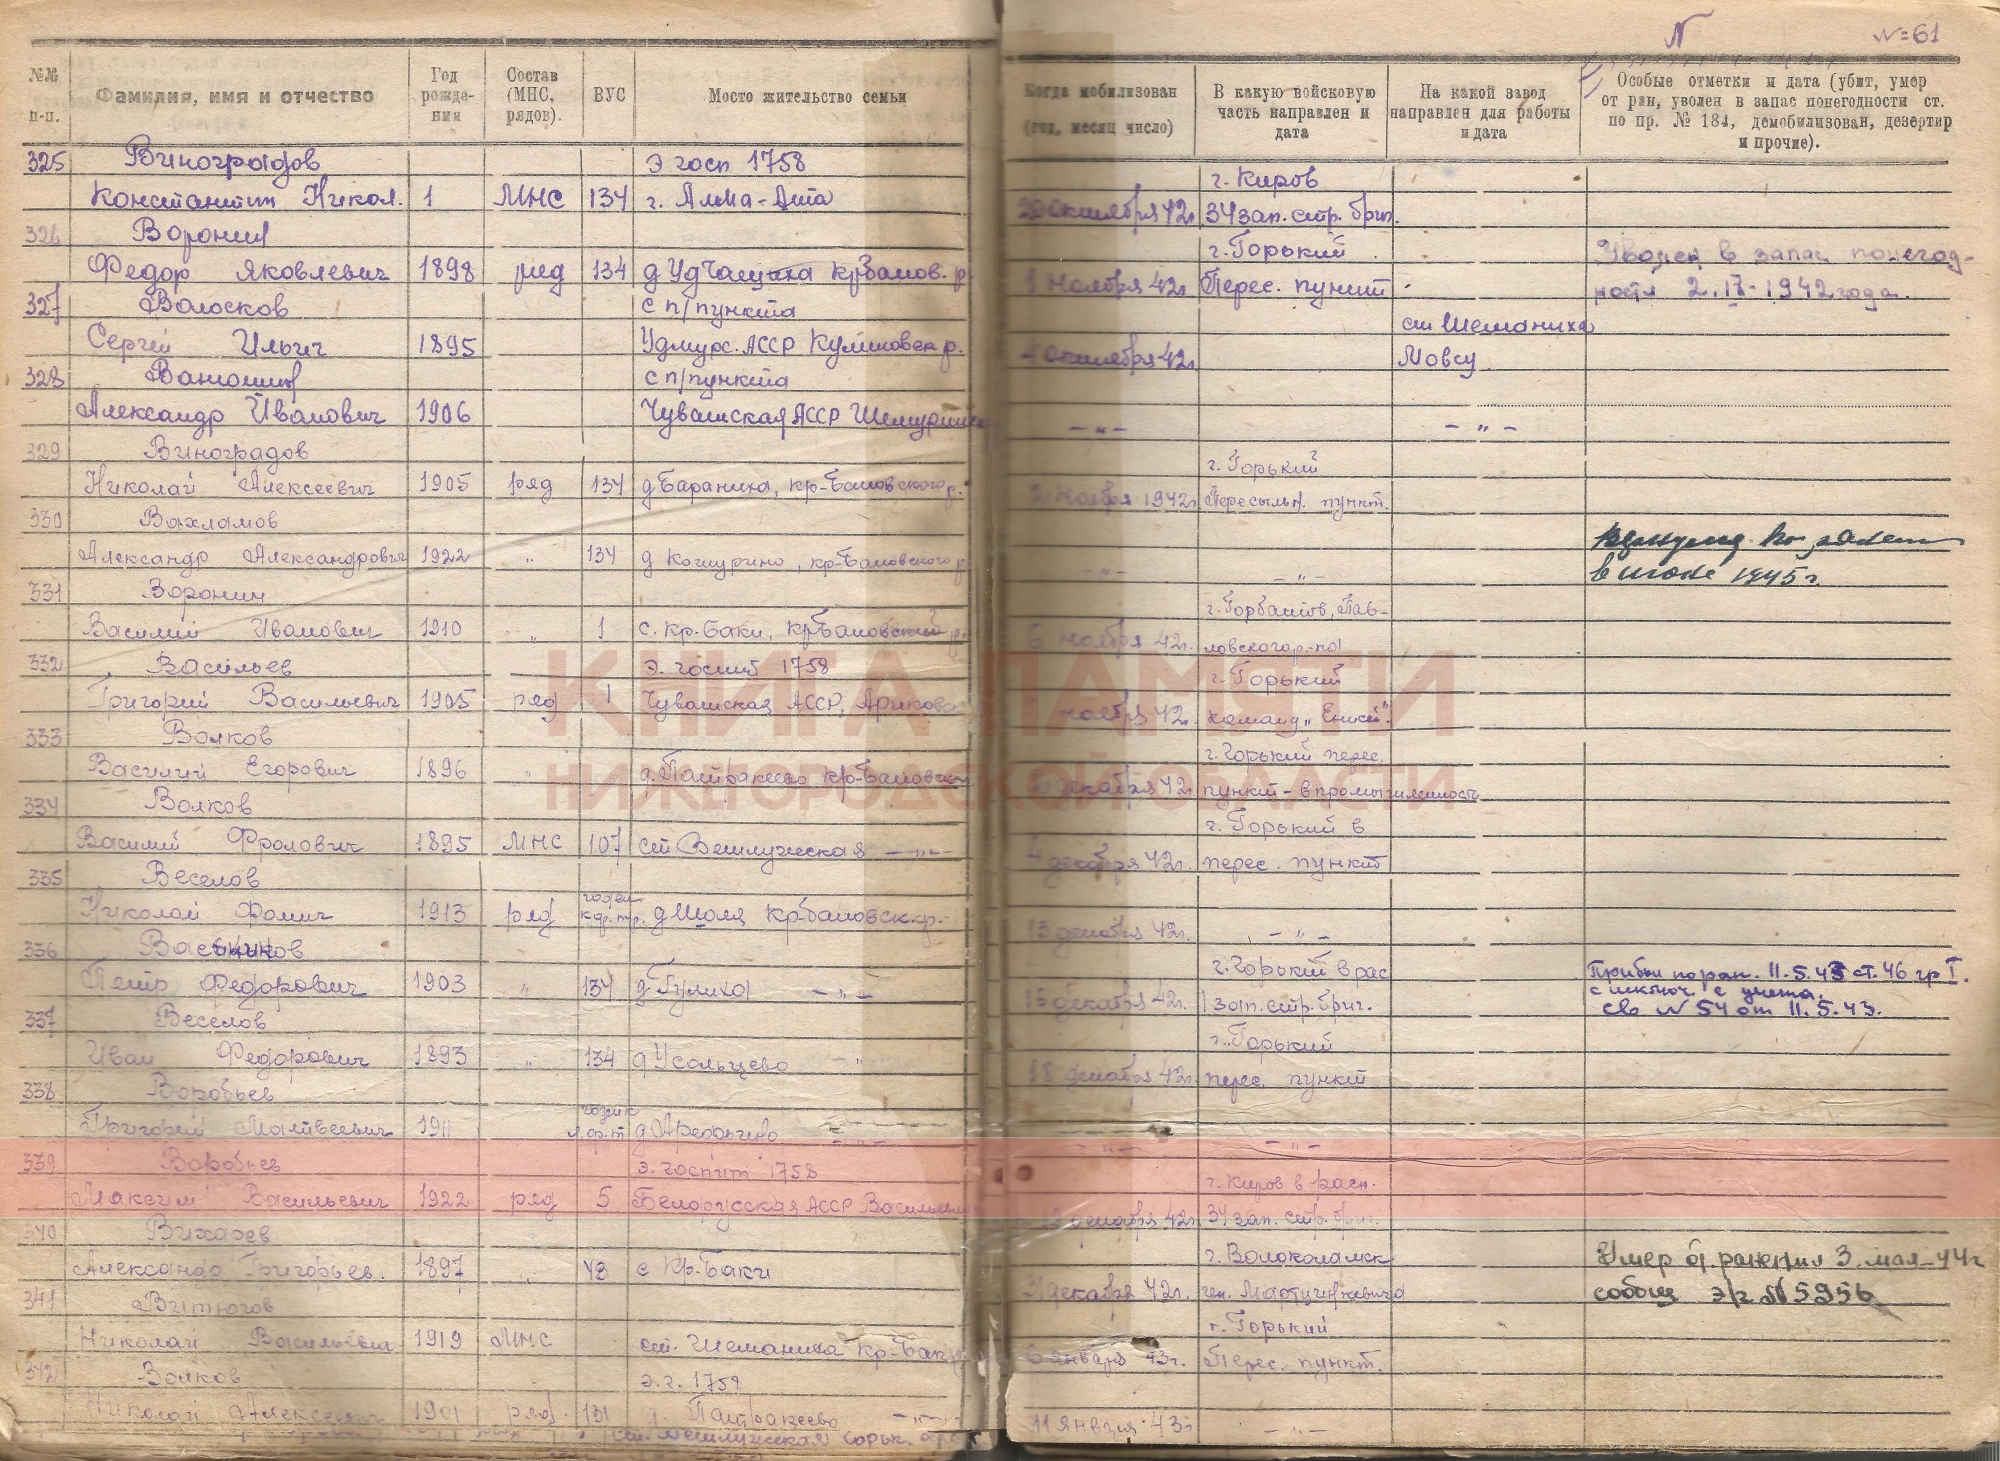 N
N=61
№№ п-п.
Фамилия, имя и отчество
Год рожде- ния
Состав (МНС, рядов).
ВУС
Место жительство семьи
Когда мобилизован (год, месяц число)
В какую войсковую часть направлен и дата
На какой завод направлен для работы и дата
Особые отметки и дата (убит, умер от ран, уволен в запас понегодности ст. по пр. № 184, демобилизован, дезертир и прочие).
325 Виноградов э госп 1758 г. Киров
Константин Никол. 1 МНС 134 г. Алма-Ата 20 октября 42г. 34 зап. стр. бриг.
326 Воронин г. Горький Уволен в запас понегод-
Федор Яковлевич 1898 ряд 134 кр Баков. р. 1 ноября 42г. Перес. пункт ности 1942 года.
327 Волосков с п/пункта ст Шеманиха
Сергей Ильич 1895 Удмурс. АССР р. октября 42г. Мовсу
328 Ванюшин с п/пункта
Александр Иванович 1906 Чувашская АССР — " — — " —
329 Виноградов г. Горький
Николай Алексеевич 1905 ряд 134 д Бараниха, кр-Баковского р. 2 ноября 1942г. Пересыльн. пункт.
330 Вахламов
Александр Александрович 1922 " 134 д Кошурино, кр-Баковского р — " — — " — в 1945 г.
331 Воронин г. Горбатов, Пав-
Василий Иванович 1910 " 1 с. Кр. Баки, кр Баковский 6 ноября 42г. ловского р-на
332 Васильев э. госпит 1758 г. Горький
Григорий Васильевич 1905 ряд 1 Чувашская АССР, ноября 42г. команд „Енисей".
333 Волков г. Горький перес.
Василий Егорович 1896 " д. Патракеево кр-Баковск декабря 42г. пункт - в промышленность
334 Волков г. Горький в
Василий Фролович 1895 МНС 107 ст Ветлужская — " — 4 декабря 42г. перес. пункт
335 Веселов годен
Николай Фомич 1913 ряд д Шоля кр-баковск. р. 13 декабря 42г. — " —
336 г. Горький в рас Прибыл по ран. 11.5.43 ст. 46 гр I.
Петр Федорович 1903 " 134 д Гулиха — " — 16 декабря 42г. 1 зап. стр. бриг. с исключ. с учета.
св N 54 от 11.5.43.
337 Веселов г. Горький
Иван Федорович 1893 " 134 д Усольцево — " — 18 декабря 42г. перес. пункт
338 Воробьев
Григорий Матвеевич 1911 — " — — " — — " —
339 Воробьев э. госпит 1758 г. Киров в расп.
Максим Васильевич 1922 ряд 5 Белорусская АССР декабря 42г. 34 зап. стр. бриг.
340 Вихарев г. Волоколамск Умер от ранения 3 мая-44г
Александр Григорьев. 1897 " 43 с Кр-Баки 31 декабря 42г. ген. Мартцинкевича сообщ э/г № 5956
341 Витюгов г. Горький
Николай Васильевич 1919 МНС ст. Шеманиха Кр-Бак 6 января 43г. Перес. пункт.
342 Волков э. г.
Николай Алексеевич 1901 ряд. 131 д. Патракеево — " — 11 января 43г — " —
ст. Ветлужская Горьк.
КНИГА ПАМЯТИ
НИЖЕГОРОДСКОЙ ОБЛАСТИ